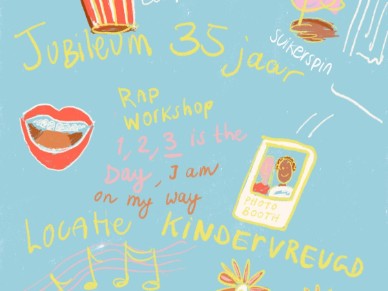 Jubileum 35 jaar
suikerspin
Rap
Workshop
1, 2, 3 is the
Day, I am
on my way
PHOTO
BOOTH
Locatie Kindervreugd